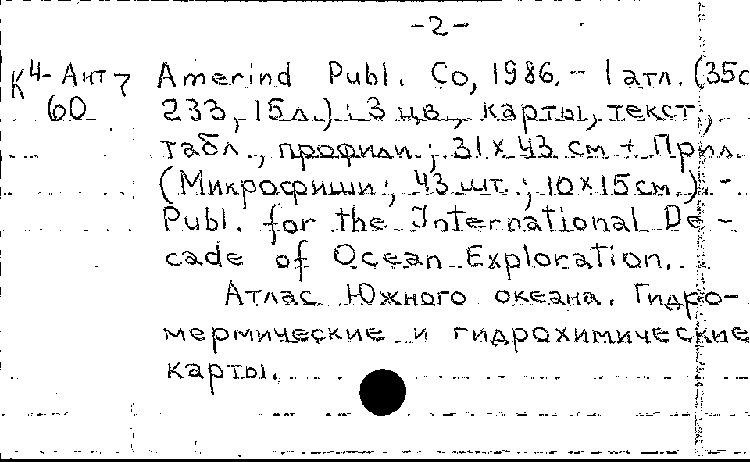 -2-
К4-Ант7 Amerind Publ. Co, 1986.- 1 атл. (35с
60 233, 15л.): 3 цв., карты, текст,
табл., профили; 31х43 см + Прил.
(Микрофиши; 43 шт.; 10х15 см.).-
Publ. for the International De-
cade of Ocean Exploration.
Атлас Южного океана. Гидро-
термические и гидрохимические
карты.